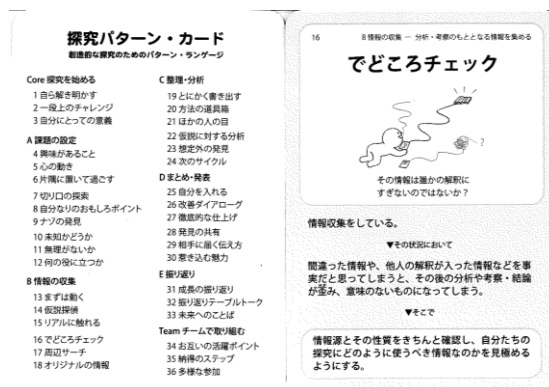 探究パターン・カード
創造的な探究のためのパターン・ランゲージ
Core 探究を始める
1 自ら解き明かす
2 一段上のチャレンジ
3 自分にとっての意義
A 課題の設定
4 興味があること
5 心の動き
6 片隅に置いて過ごす
7 切り口の探索
8 自分なりのおもしろポイント
9 ナゾの発見
10 未知かどうか
11 無理がないか
12 何の役に立つか
B 情報の収集
13 まずは動く
14 仮説探偵
15 リアルに触れる
16 でどころチェック
17 周辺サーチ
18 オリジナルの情報
C 整理・分析
19 とにかく書き出す
20 方法の道具箱
21 ほかの人の目
22 仮説に対する分析
23 想定外の発見
24 次のサイクル
D まとめ・発表
25 自分を入れる
26 改善ダイアローグ
27 徹底的な仕上げ
28 発見の共有
29 相手に届く伝え方
30 惹き込む魅力
E 振り返り
31 成長の振り返り
32 振り返りテーブルトーク
33 未来へのことば
Team チームで取り組む
34 お互いの活躍ポイント
35 納得のステップ
36 多様な参加
16
B 情報の収集 － 分析・考察のもととなる情報を集める
でどころチェック
?
その情報は誰かの解釈に
すぎないのではないか？
情報収集をしている。
▼その状況において
間違った情報や、他人の解釈が入った情報などを事
実だと思ってしまうと、その後の分析や考察・結論
が歪み、意味のないものになってしまう。
▼そこで
情報源とその性質をきちんと確認し、自分たちの
探究にどのように使うべき情報なのかを見極める
ようにする。